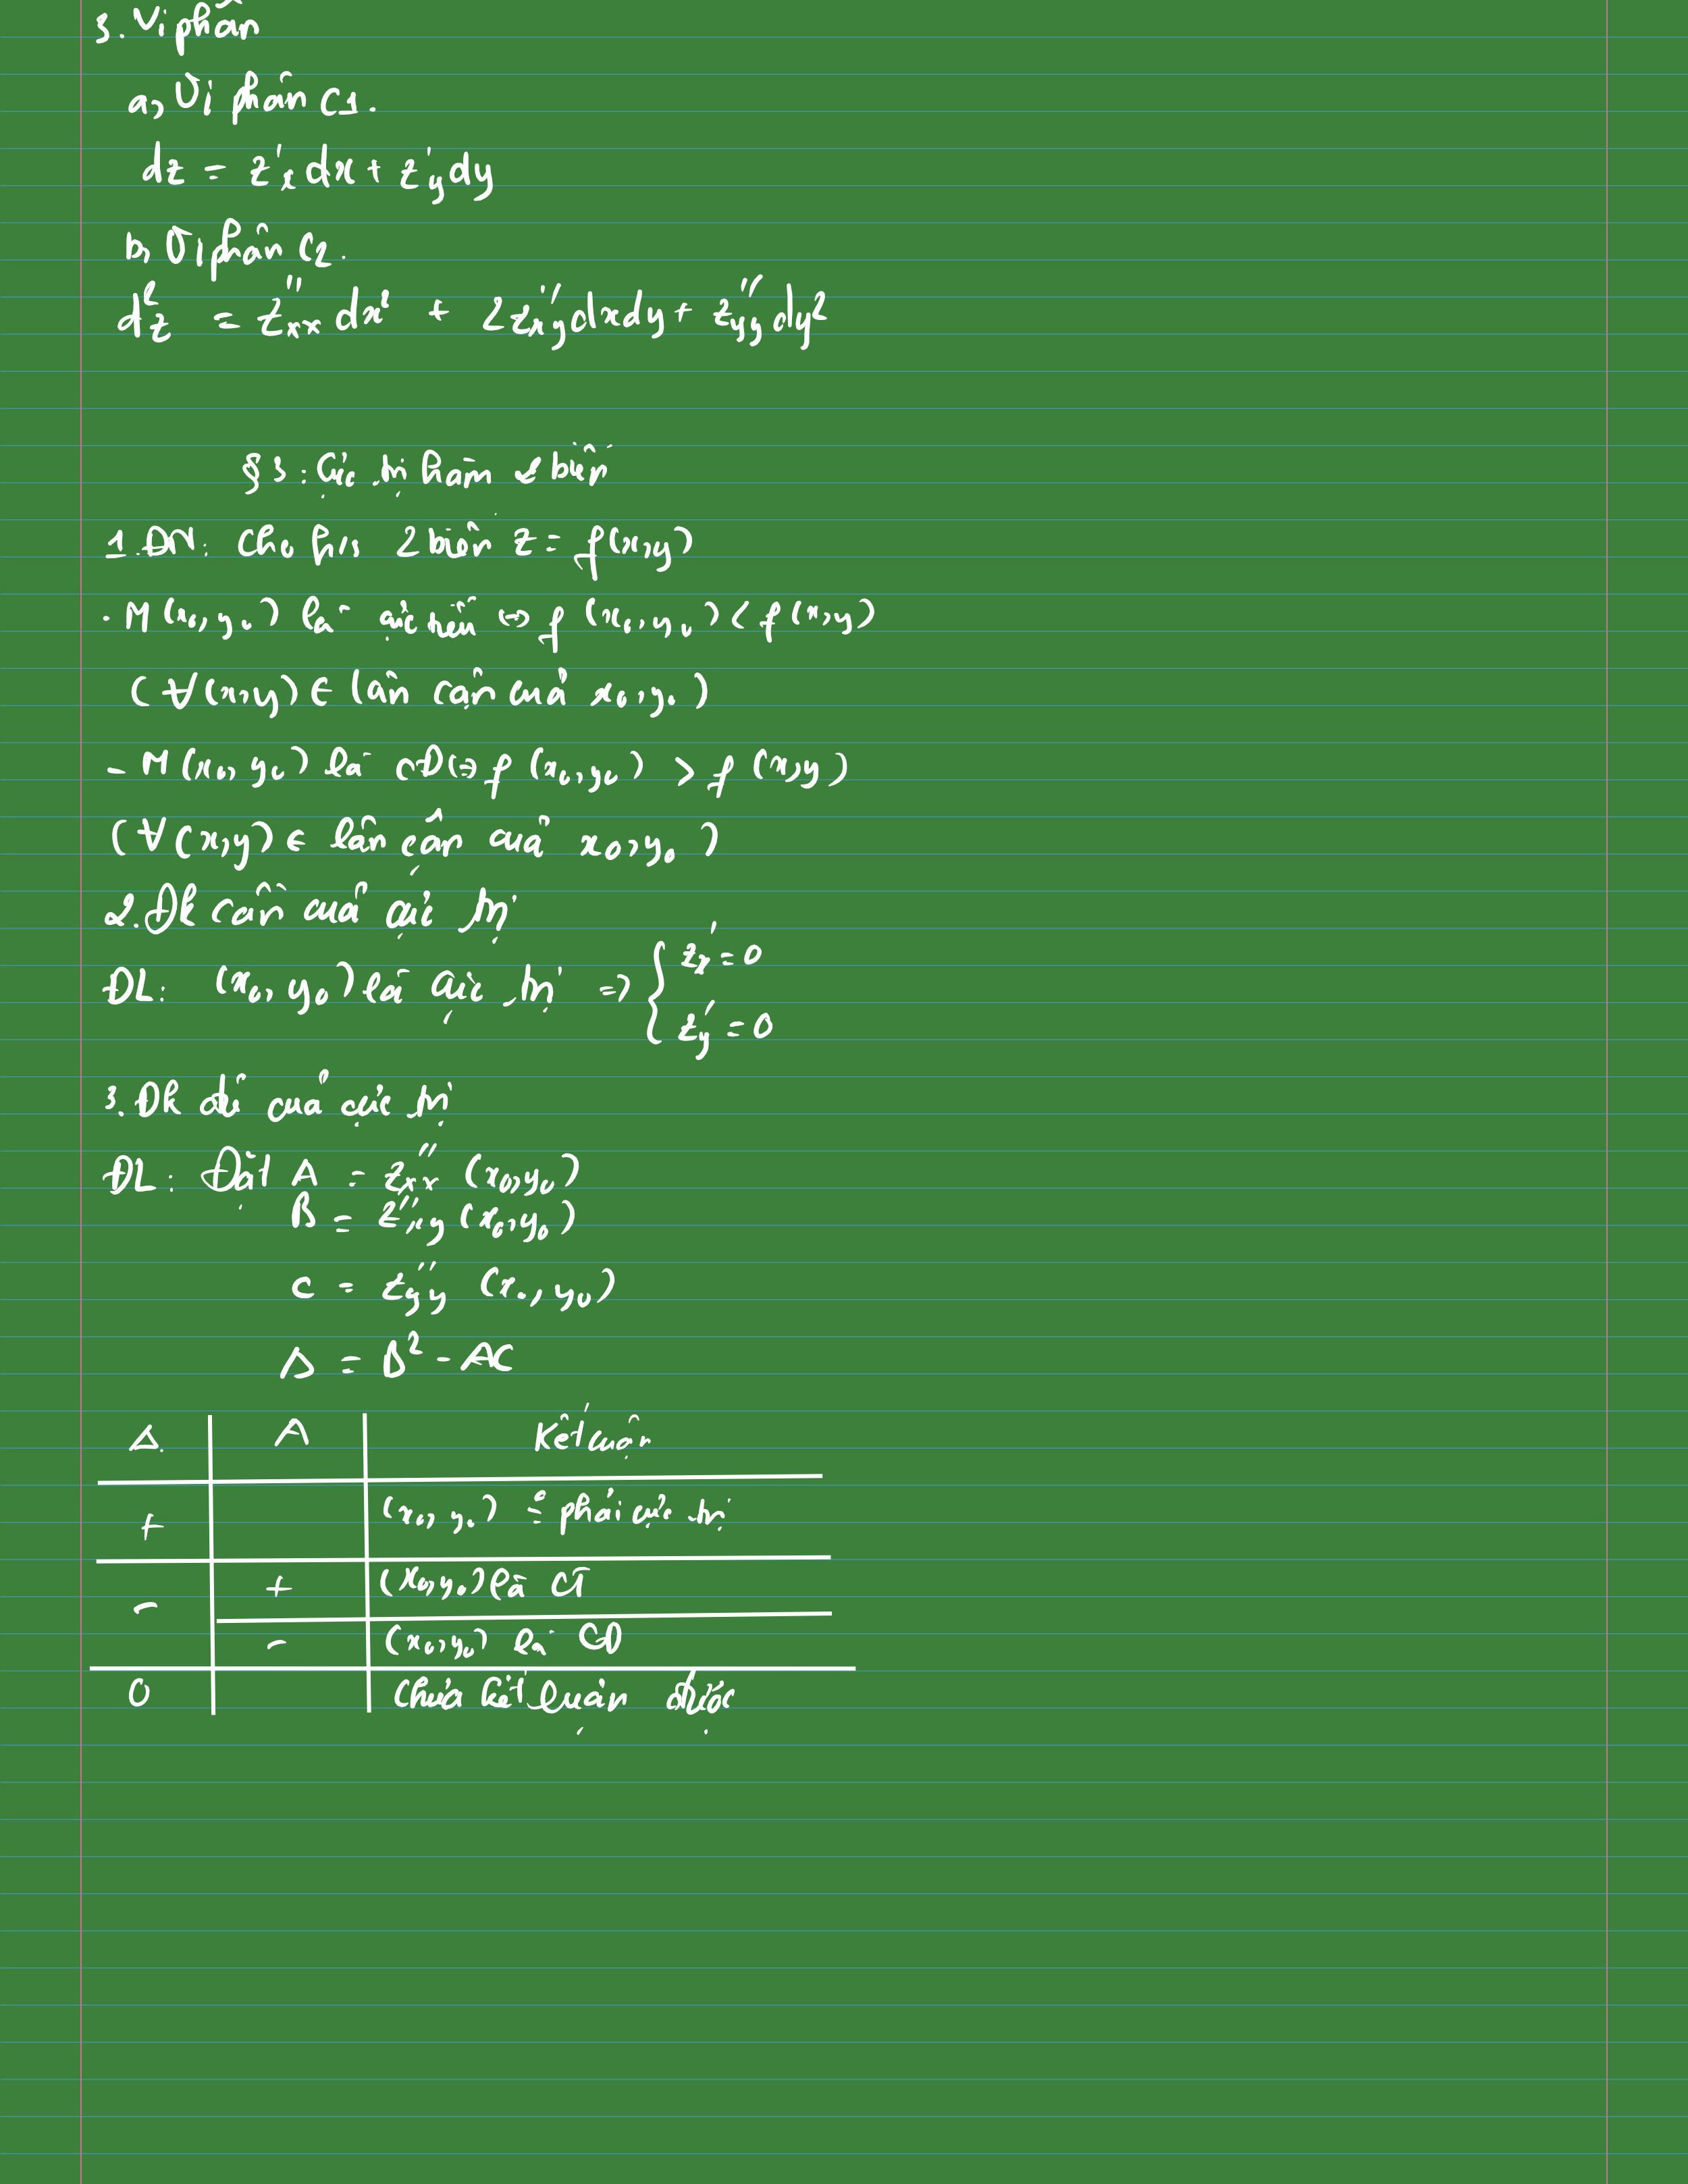 3. Vi phân
a, Vi phân C1.
dz = z'x dx + z'y dy
b, Vi phân C2.
d²z = z''xx dx² + 2z''xy dxdy + z''yy dy²
§3: Cực trị hàm 2 biến
1. ĐN: Cho h/s 2 biến z = f(x,y)
- M(x₀, y₀) là cực tiểu ⇔ f(x₀, y₀) < f(x,y)
(∀(x,y) ∈ lân cận của x₀, y₀)
- M(x₀, y₀) là CĐ ⇔ f(x₀, y₀) > f(x,y)
(∀(x,y) ∈ lân cận của x₀, y₀)
2. Đk cần của cực trị
ĐL: (x₀, y₀) là cực trị ⇒ { z'x = 0
z'y = 0
3. Đk đủ của cực trị
ĐL: Đặt A = z''xx (x₀,y₀)
B = z''xy (x₀,y₀)
C = z''yy (x₀, y₀)
Δ = B² - AC
Δ A Kết luận
+ (x₀, y₀) phải cực trị
+ (x₀,y₀) là CT
-
- (x₀,y₀) là CĐ
0 Chưa kết luận được